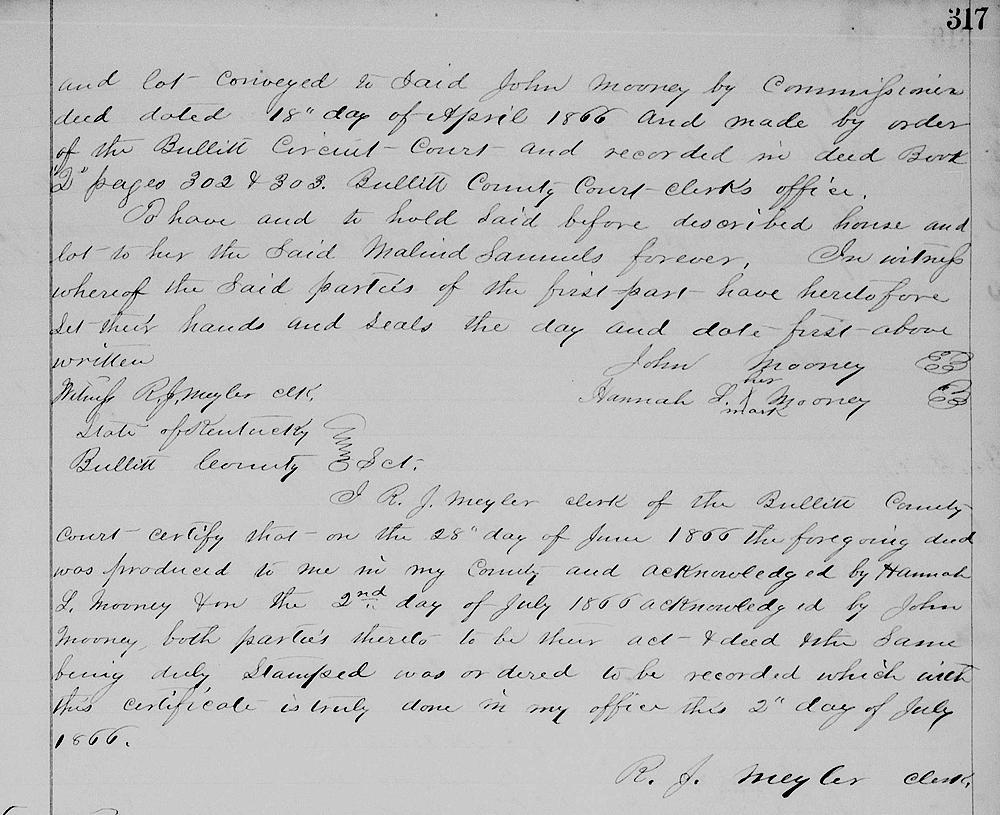 317
and lot conveyed to Said John Mooney by Commissioner
deed dated 18" day of April 1866 and made by order
of the Bullitt Circuit Court and recorded in deed Book
"2" pages 302 & 303. Bullitt County Court clerks office.
To have and to hold Said before described house and
lot to her the Said Malind Samuels forever. In witness
whereof the Said parties of the first part have heretofore
Set their hands and seals the day and date first above
written John Mooney
Witness R. J. Meyler clk. Hannah L. her X mark Mooney
State of Kentucky
Bullitt County Sct.
I R. J. Meyler clerk of the Bullitt County
Court certify that on the 28" day of June 1866 the foregoing deed
was produced to me in my County and acknowledged by Hannah
L. Mooney & on the 2nd day of July 1866 acknowledged by John
Mooney, both parties thereto to be their act & deed & the Same
being duly Stamped was ordered to be recorded which with
this certificate is truly done in my office this 2" day of July
1866.
R. J. Meyler clerk.